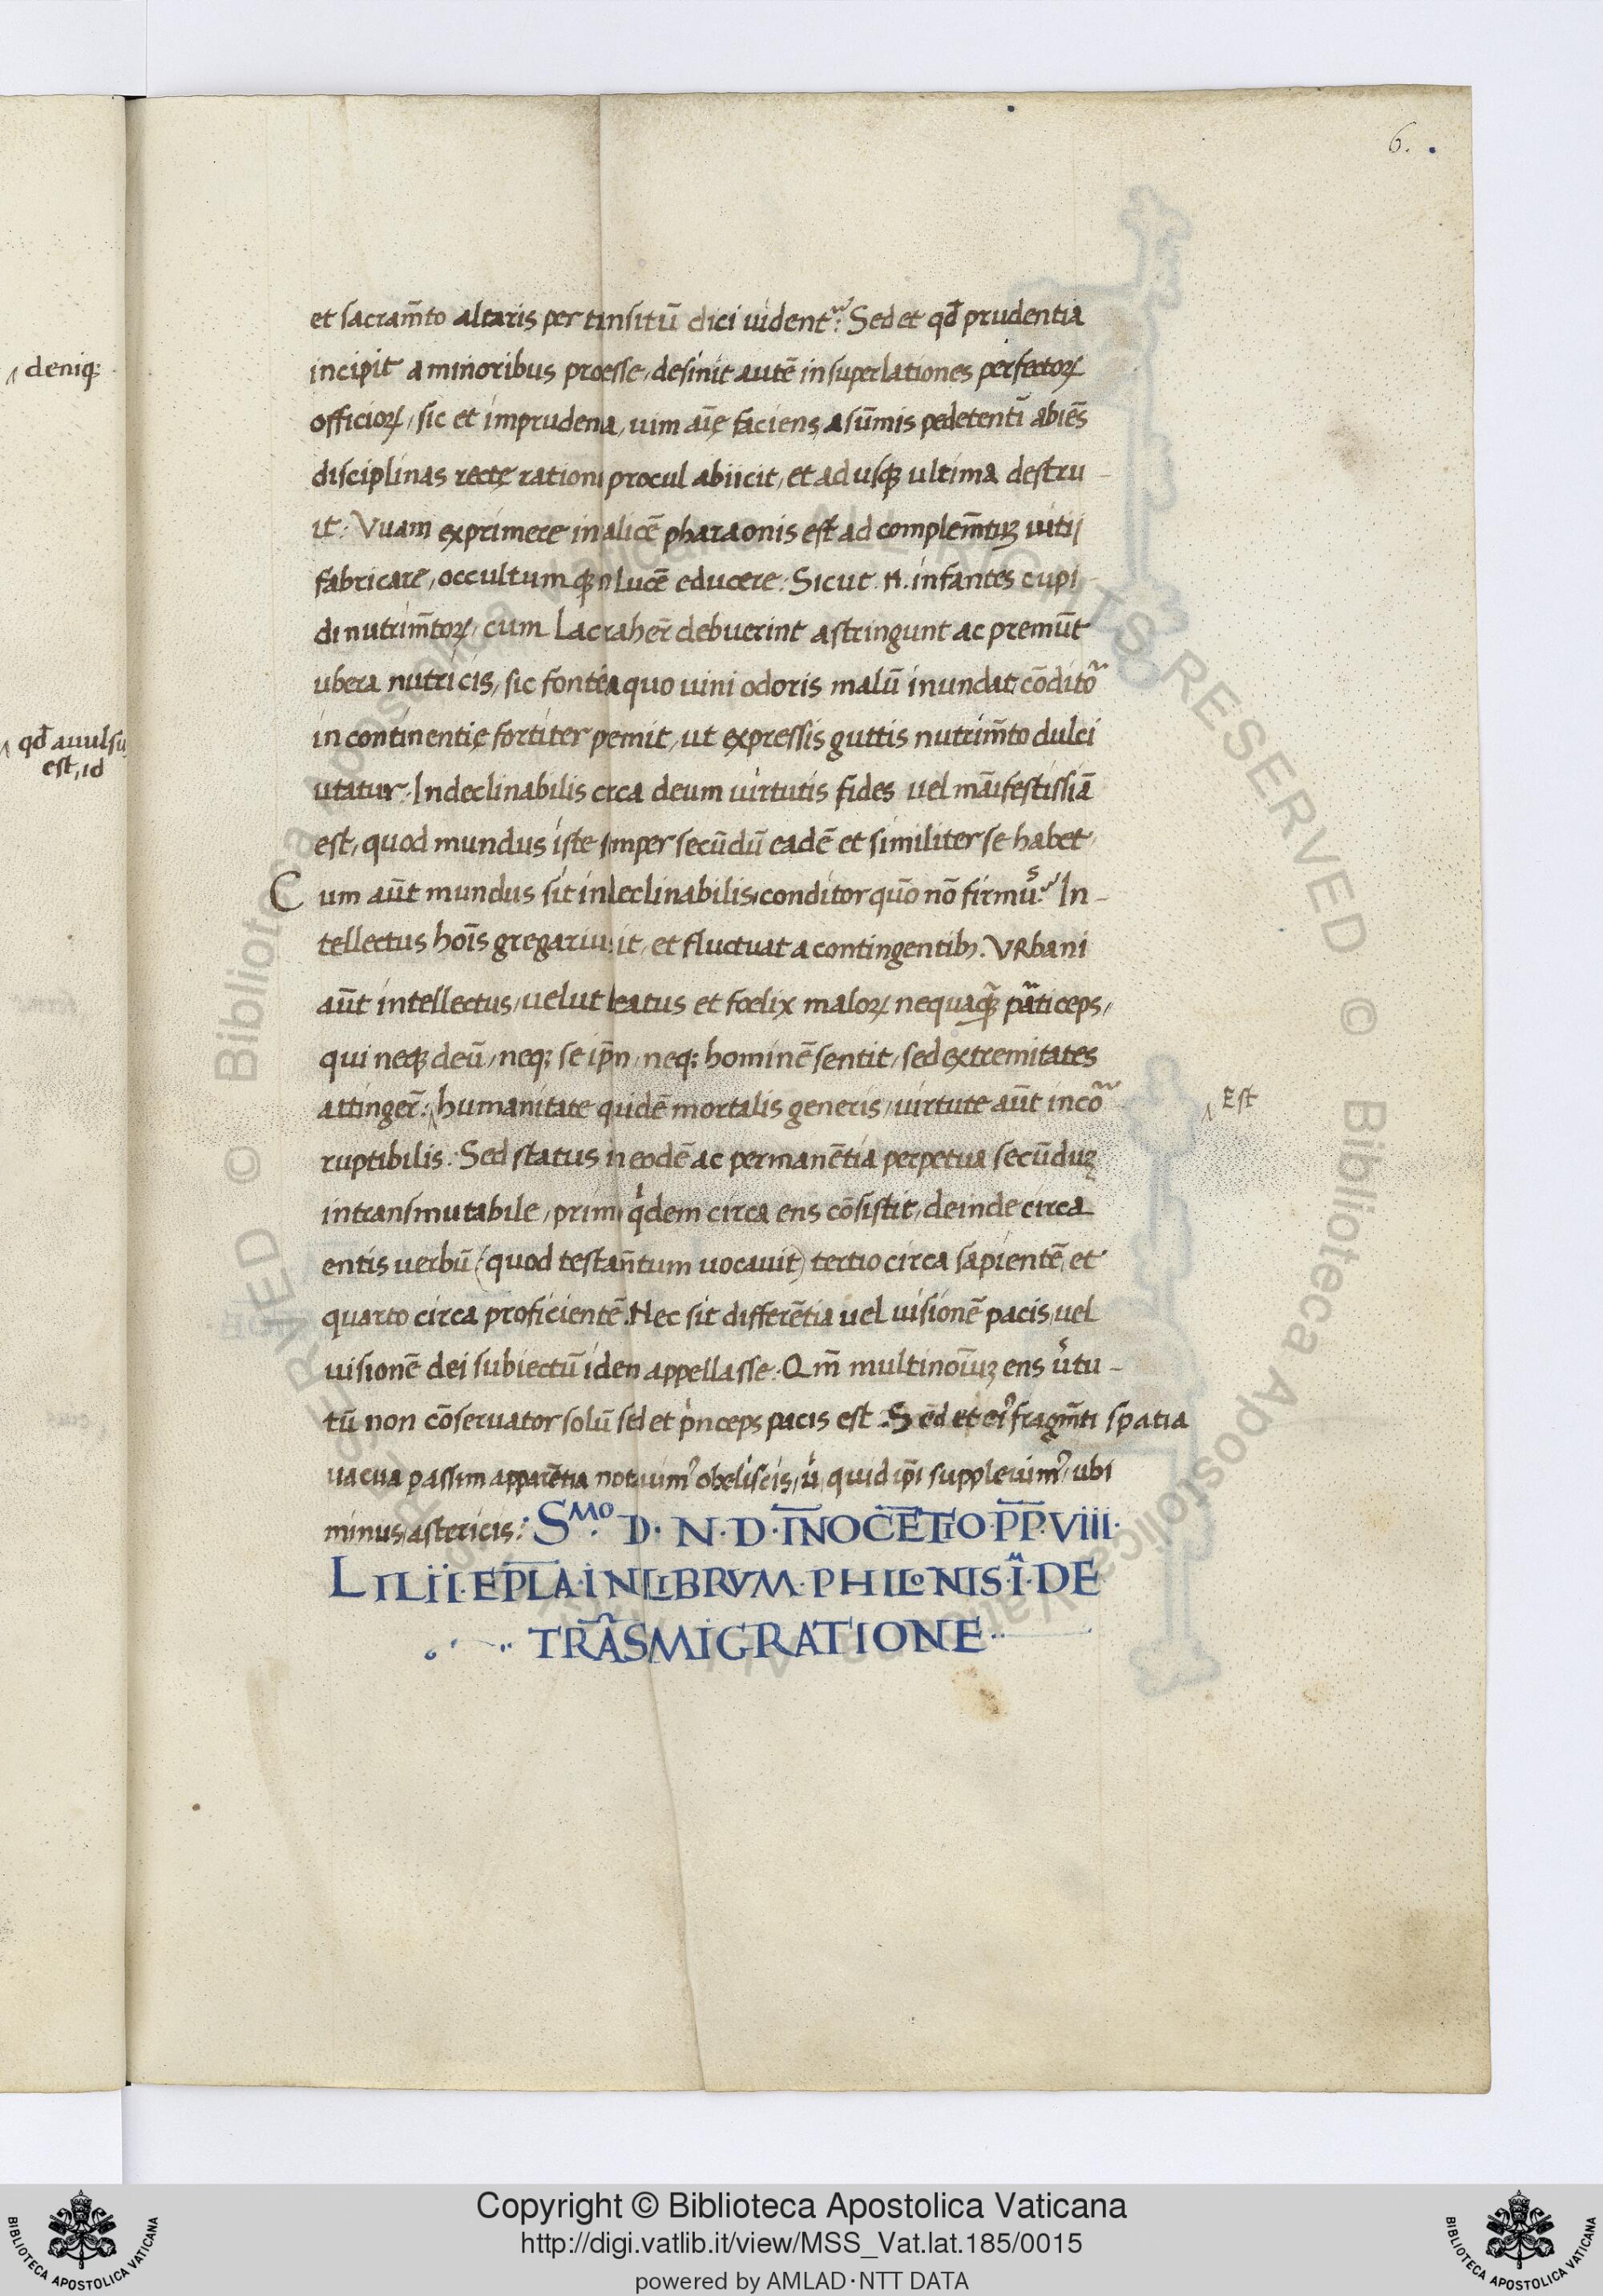 6.
deniq;
qd̄ auulsu
est, id
et sacram̄to altaris per tnsitū dici uident᷑: Sed et qd̄ prudentia
incipit a minoribus proesse, desinit autē in superlationes perfectoꝝ
officioꝝ, sic et imprudena, uim aīę faciens, a sūmis pedetentī abiēs
disciplinas rectę rationi procul abiicit, et ad usqꝫ ultima destru-
it: Vuam exprimere in alicē pharaonis est ad complem̄tuꝫ uitij
fabricare, occultum qꝫ n lucē educere: Sicut .n. infantes cupi-
di nutrim̄toꝝ, cum lac raher̄ debuerint astringunt ac premūt
ubera nutricis, sic fonte a quo uini odoris malū inundat, cōdito᷑
incontinentię fortiter pemit, ut expressis guttis nutrim̄to dulci
utatur: Indeclinabilis crca deum uirtutis fides uel māifestissiā
est, quod mundus iste smper secūdū eadē et similiter se habet,
Cum aūt mundus sit indeclinabilis, conditor quō nō firmus? In-
tellectus hoīs gregariu it, et fluctuat a contingentibꝫ. VRbani
aūt intellectus, uelut beatus et foelix maloꝝ nequaqꝫ̄ pāticeps,
qui neqꝫ deū, neq; se ip̄n, neq; hominē sentit, sed extremitates
attinger̄: humanitate quidē mortalis generis, uirtute aūt inco᷑
Est
ruptibilis: Sed status n eodē ac permanētia perpetua secūduꝫ
intransmutabile, primi qͥdem circa ens cōsistit, deinde circa
entis uerbū (quod testan̄tum uocauit) tertio circa sapientē, et
quarto circa proficientē. Nec sit differētia uel uisionē pacis, uel
uisionē dei subiectū iden appellasse: Qm̄ multinoīuꝫ ens uͥtu-
tū non cōseruator solū sed et pͥnceps pacis est. Sed et eiꝰ fragm̄ti spatia
uacua passim apparētia notauimꝰ obeliscis, uͥ quid ip̄i suppleuimꝰ, ubi
minus, astericis: Sᴹᴼ. D. N. D. ĪNOCĒTIO. P̄P̄. VIII.
LILII. EP̄LA. IN LIBRVM. PHILONIS. Ī. DE
TRĀSMIGRATIONE
Copyright © Biblioteca Apostolica Vaticana
http://digi.vatlib.it/view/MSS_Vat.lat.185/0015
powered by AMLAD·NTT DATA